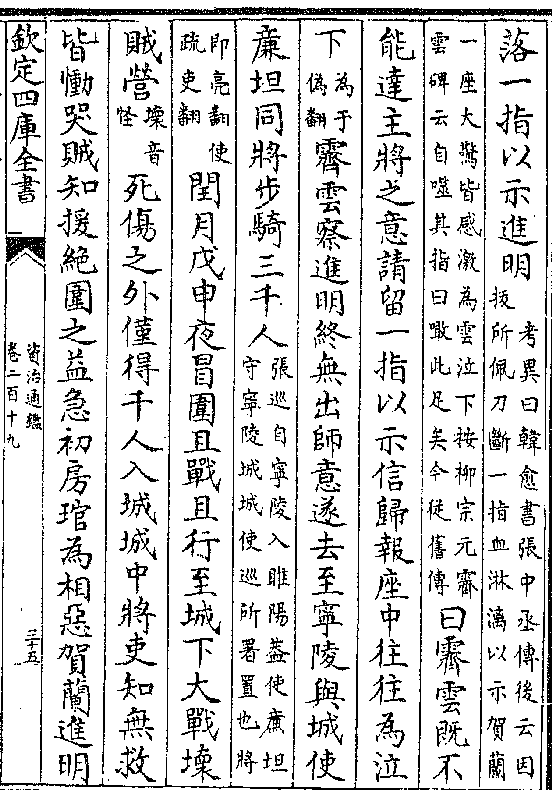 落一指以示進明考異曰韓愈書張中丞傳後云因拔所佩刀斷一指血淋漓以示賀蘭
一座大驚皆感激為雲泣下按柳宗元霽雲碑云自噬其指曰噉此足矣今從舊傳曰霽雲既不
能達主將之意請留一指以示信歸報座中往往為泣
下為于偽翻霽雲察進明終無出師意遂去至寧陵與城使
廉坦同將步騎三千人張巡自寧陵入睢陽葢使廉坦守寧陵城城使巡所署置也將
即亮翻使疏吏翻閏月戊申夜冒圍且戰且行至城下大戰壞
賊營壞音怪死傷之外僅得千人入城城中將吏知無救
皆慟哭賊知援絶圍之益急初房琯為相惡賀蘭進明
欽定四庫全書
資治通鑑
卷二百十九
三十五